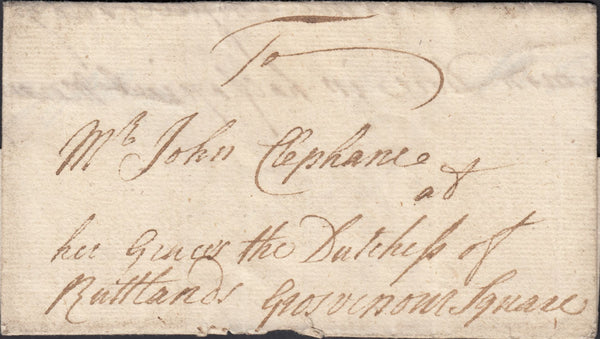 To
Mr John Clephane
at
her Graces the Dutchess of
Ruttlands Grosvenour Square